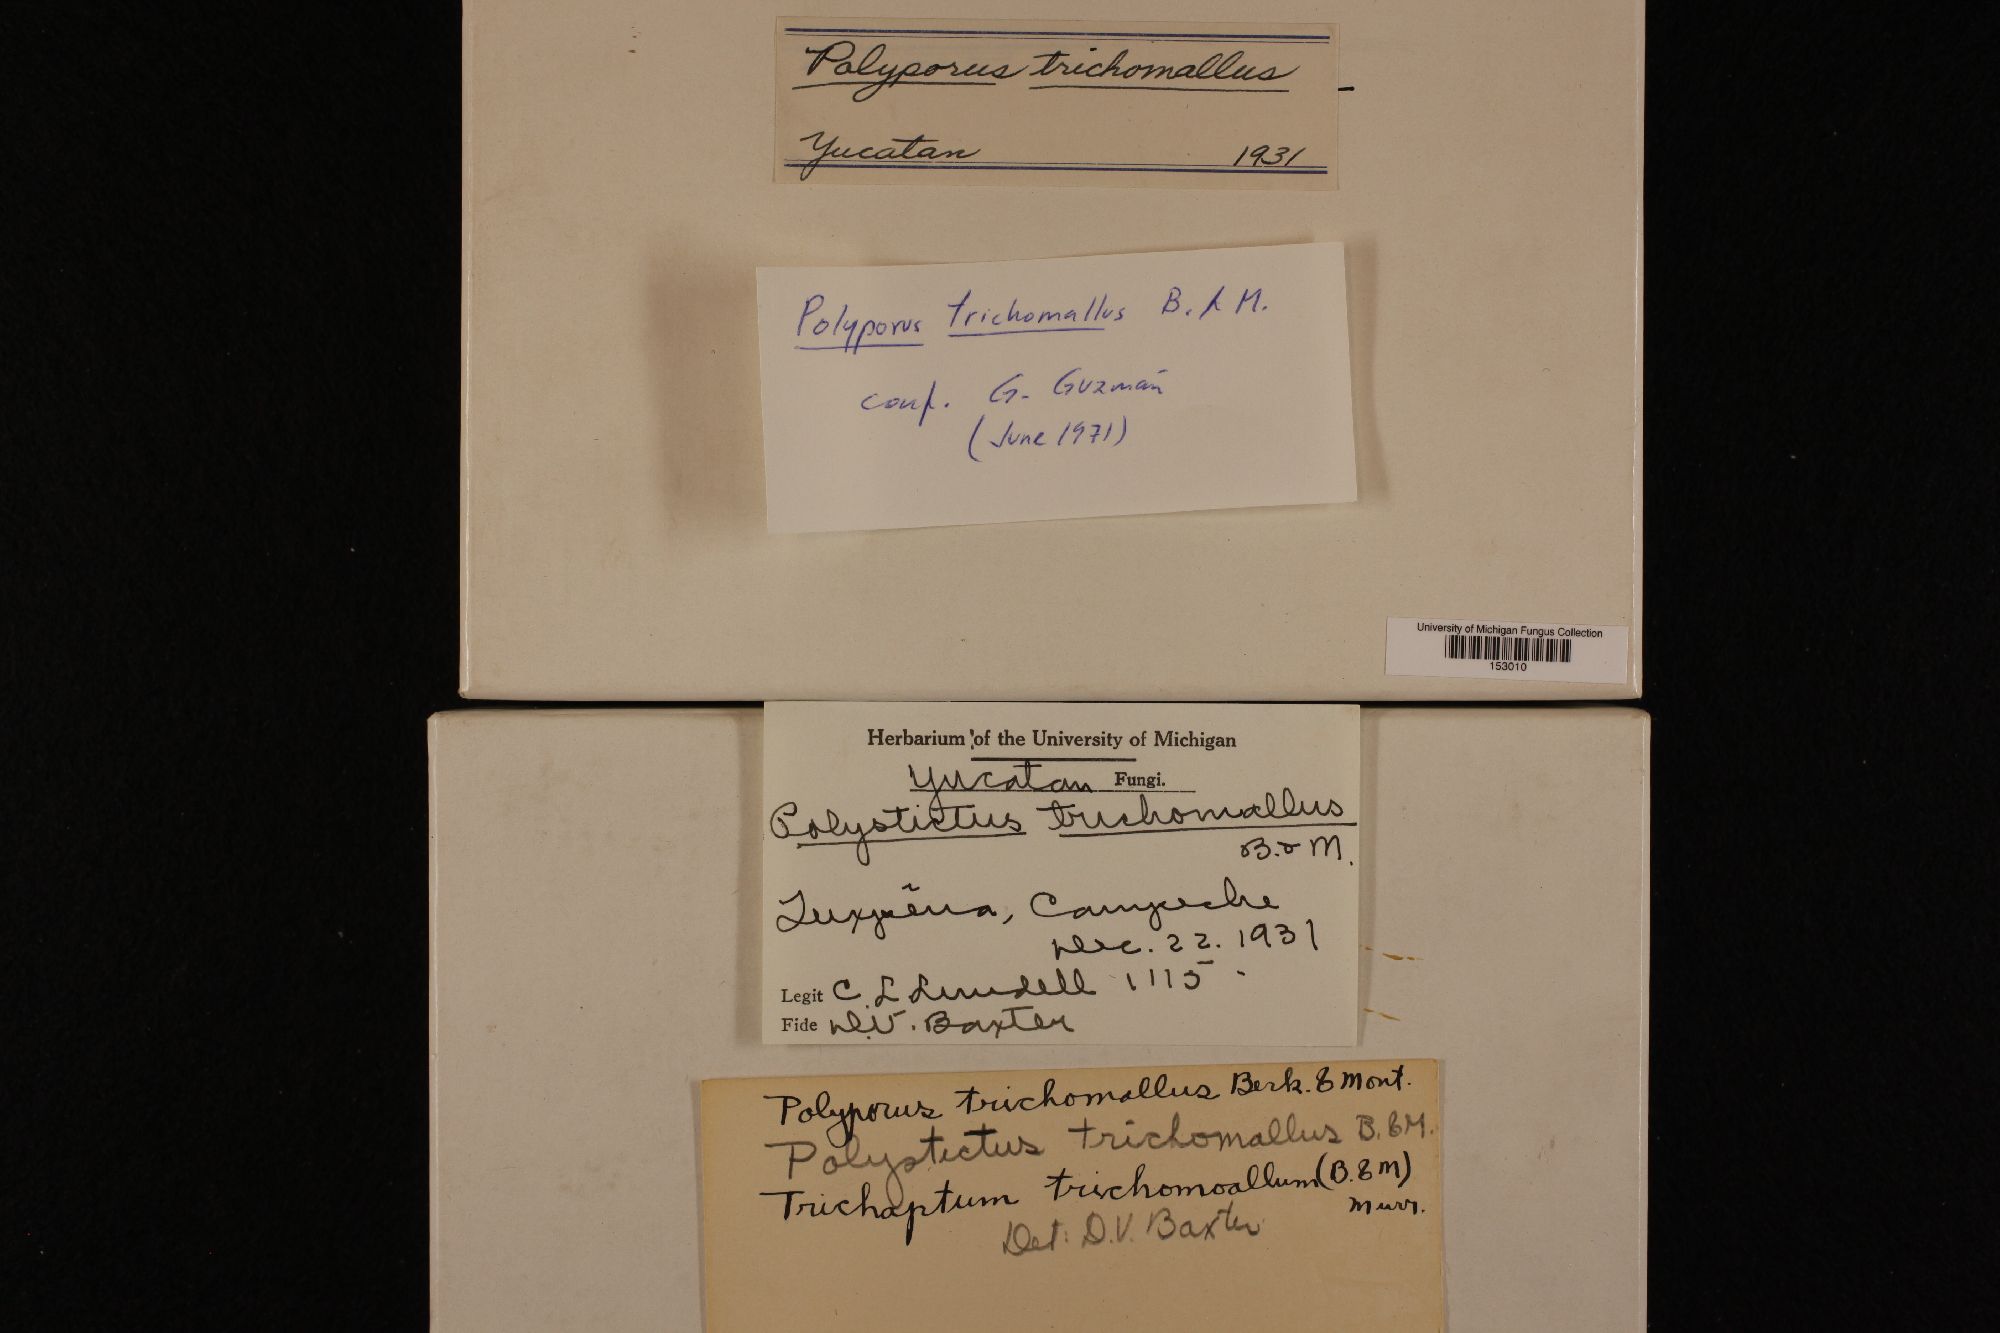 Polyporus trichomallus
Yucatan 1931
Polyporus trichomallus B. & M.
conf. G. Guzmán
(June 1971)
University of Michigan Fungus Collection
153010
Herbarium of the University of Michigan
Yucatan Fungi.
Polystictus trichomallus
B. & M.
Tuxpeña, Campeche
Dec. 22. 1931
Legit C. L. Lundell 1115
Fide D.V. Baxter
Polyporus trichomallus Berk. & Mont.
Polystictus trichomallus B. & M.
Trichaptum trichomoallum (B. & M)
Murr.
Det: D.V. Baxter